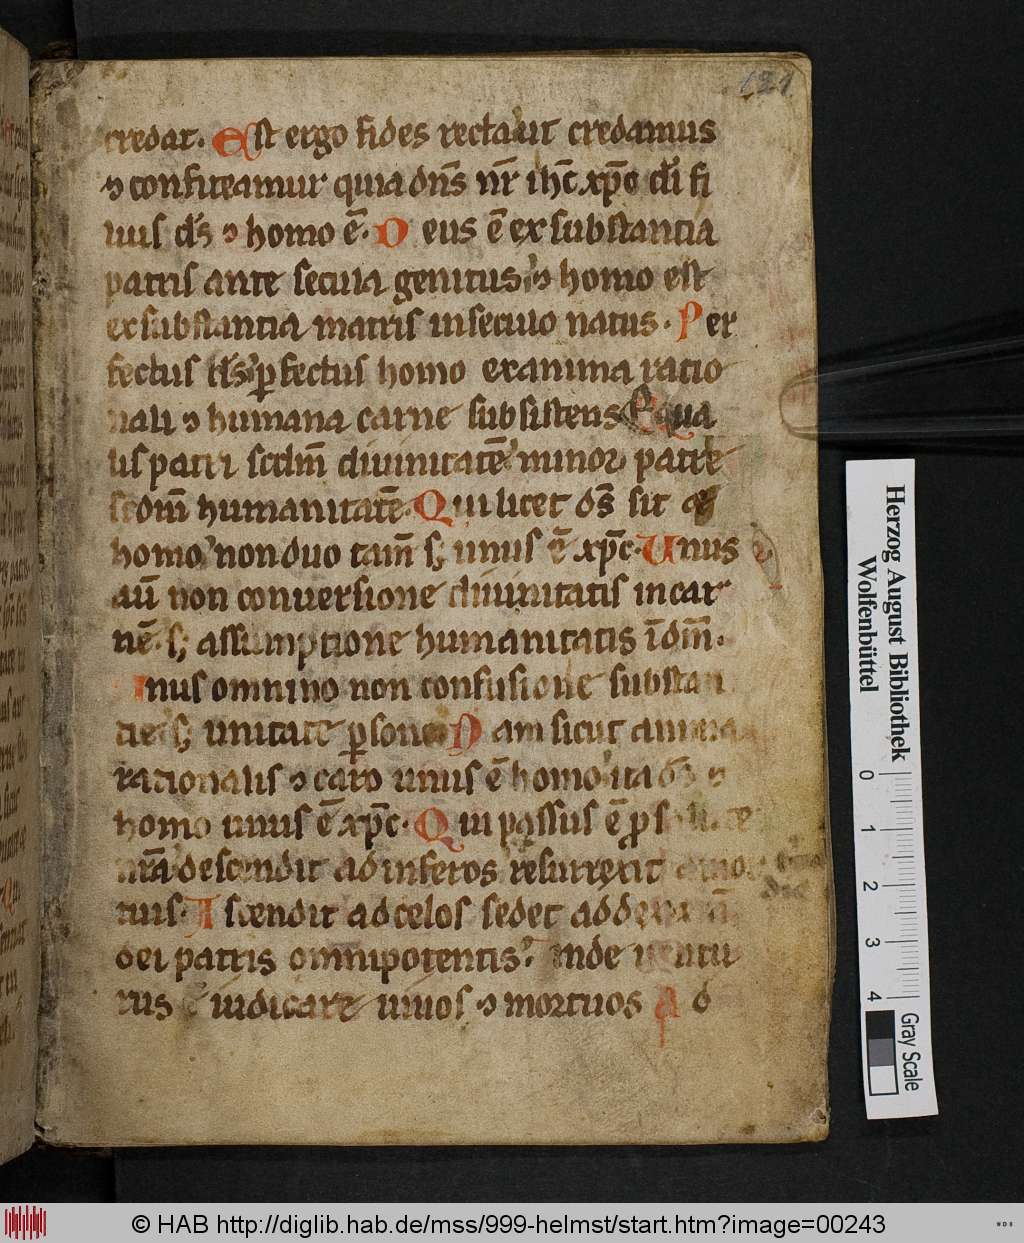 121
credat. Est ergo fides recta ut credamus
⁊ confiteamur quia dn̄s nr̄ ih̄c xp̄c di fi
lius ds ⁊ homo ē. Deus ē ex substantia
patris ante secula genitus ⁊ homo est
ex substantia matris in seculo natus. Per
fectus ds ꝑfectus homo ex anima ratio
nali ⁊ humana carne subsistens Equa
lis patri scdm̄ diuinitatē minor patre
scdm̄ humanitatē. Qui licet ds̄ sit ⁊
homo non duo tam̄ sꝫ unus ē xp̄c. Unus
aū non conuersione diuinitatis in car
nē. sꝫ assumptione humanitatis ī dm̄.
Unus omnino non confusione substan
tie sꝫ unitate ꝑsone Nam sicut anima
rationalis ⁊ caro unus ē homo ita ds ⁊
homo unus ē xp̄c. Qui passus ē ꝓ salute
nr̄a descendit ad inferos resurrexit a mor
tuis. Ascendit ad celos sedet ad dexteram
dei patris omnipotentis. inde uentu
rus iudicare uiuos ⁊ mortuos Ad
Herzog August Bibliothek
Wolfenbüttel
0 1 2 3 4
Gray Scale
© HAB http://diglib.hab.de/mss/999-helmst/start.htm?image=00243